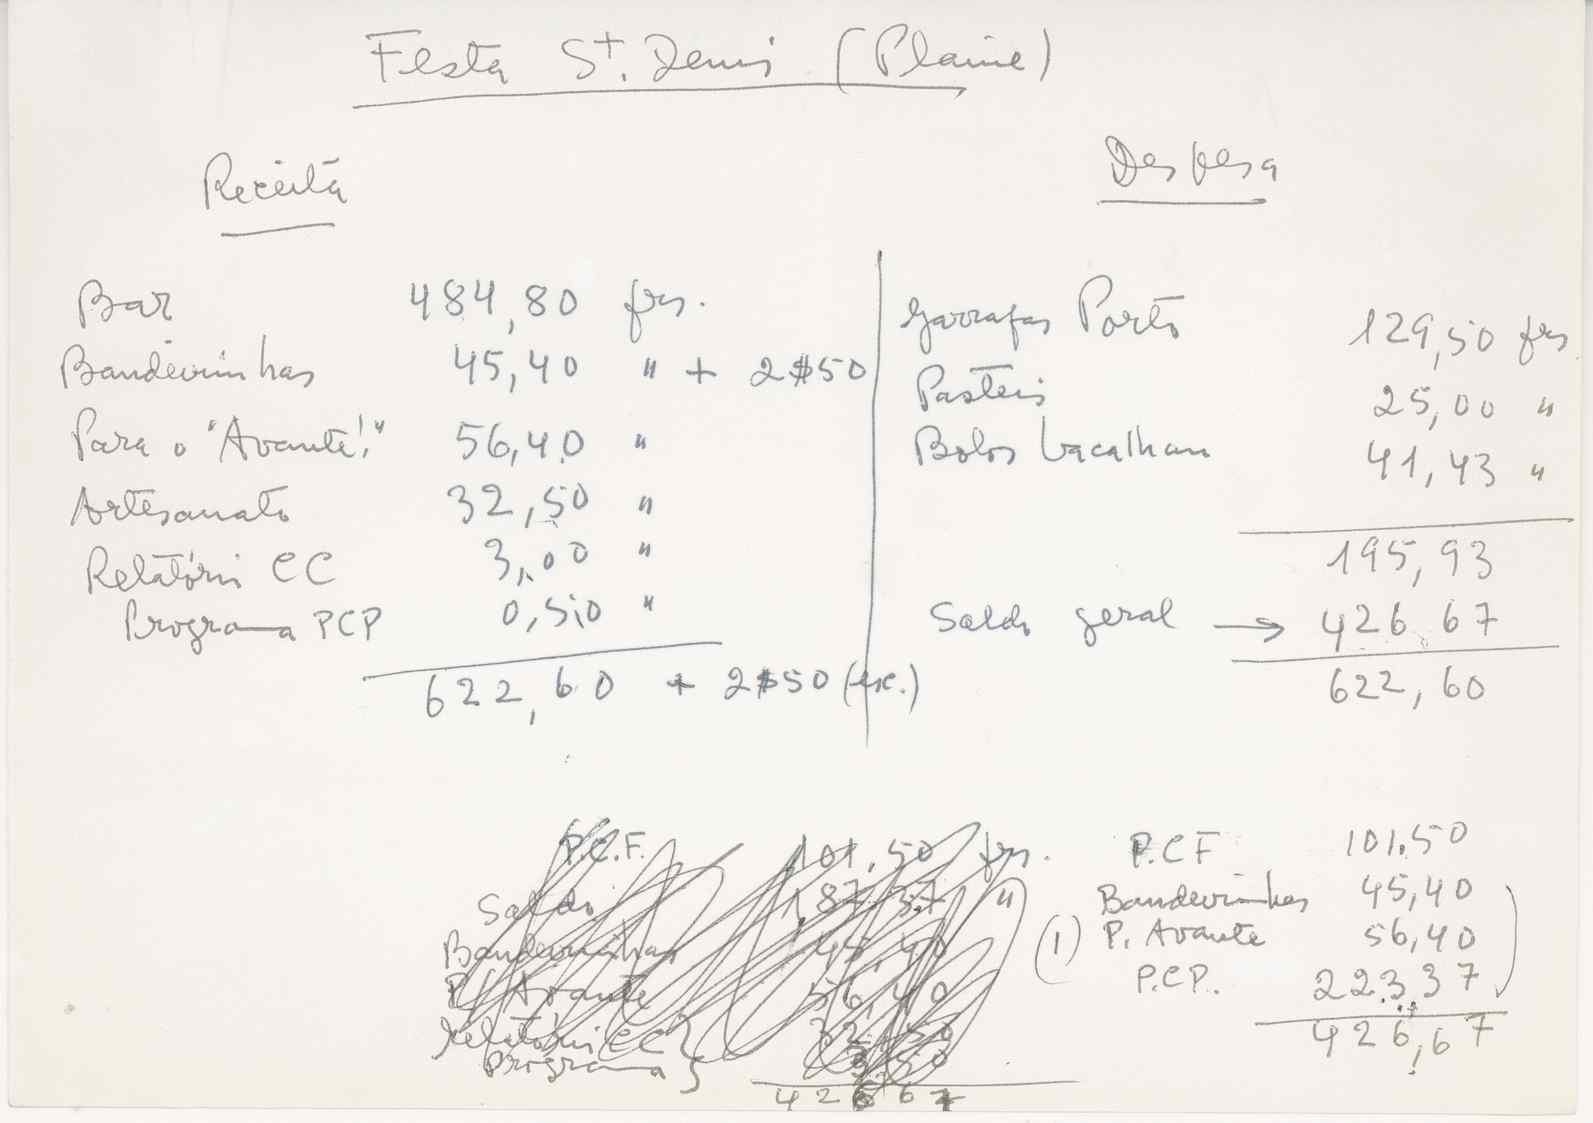 Festa St. Denis (Plaine)
Receita
Bar 484,80 frs.
Bandeirinhas 45,40 " + 2$50
Para o "Avante!" 56,40 "
Artesanato 32,50 "
Relatório CC 3,00 "
Programa PCP 0,50 "
622,60 + 2$50 (esc.)
Despesa
Garrafas Porto 129,50 frs
Pasteis 25,00 "
Bolos bacalhau 41,43 "
195,93
Saldo geral → 426,67
622,60
P.C.F. 101,50 frs.
Saldo 187,37 "
Bandeirinhas 45,40
P. Avante 56,40
Relatório CC } 32,50
Programa } 3,50
426 67
P.C F 101,50
Bandeirinhas 45,40
(1) P. Avante 56,40
P.C.P. 223,37
426,67